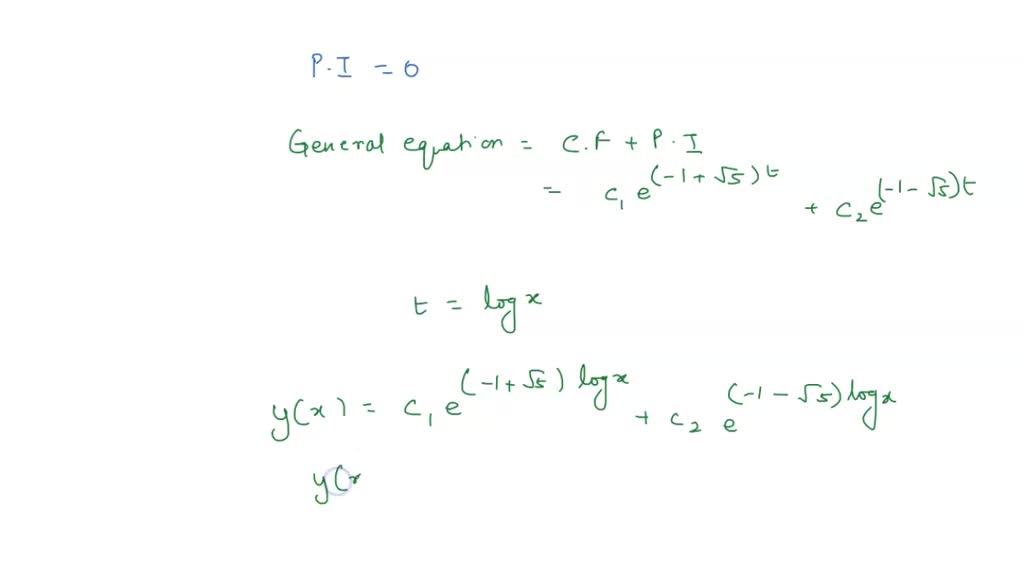 P.I = 0
General equation = C.F + P.I
= c₁ e^(-1+√5)t + c₂ e^(-1-√5)t
t = log x
y(x) = c₁ e^(-1+√5) log x + c₂ e^(-1-√5) log x
y(x